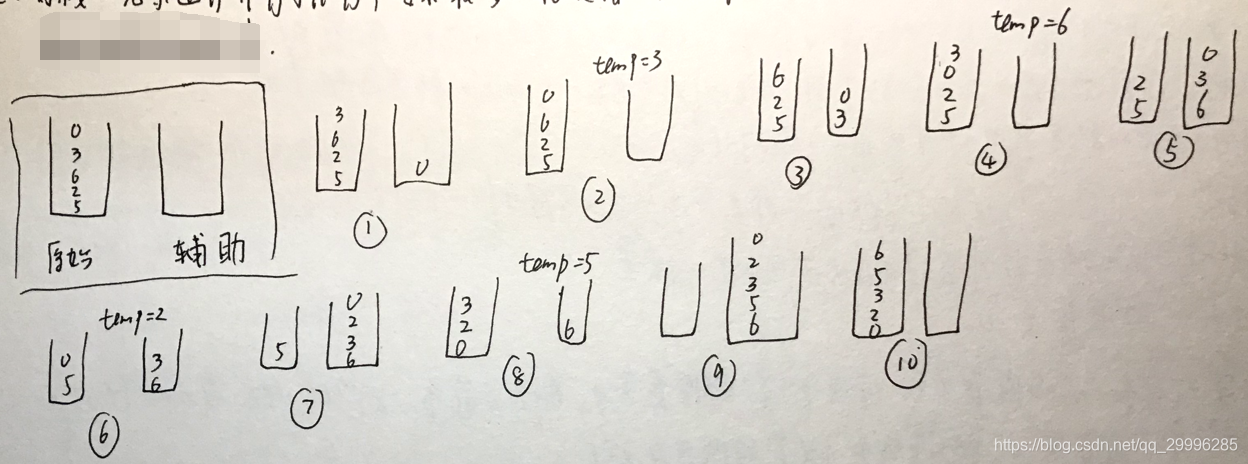 temp=3
temp=6
0
3
6
2
5
原始
辅助
3
6
2
5
0
①
0
6
2
5
②
6
2
5
0
3
③
3
0
2
5
④
2
5
0
3
6
⑤
temp=2
0
5
3
6
⑥
5
0
2
3
6
⑦
temp=5
3
2
0
6
⑧
0
2
3
5
6
⑨
6
5
3
2
0
⑩
https://blog.csdn.net/qq_29996285